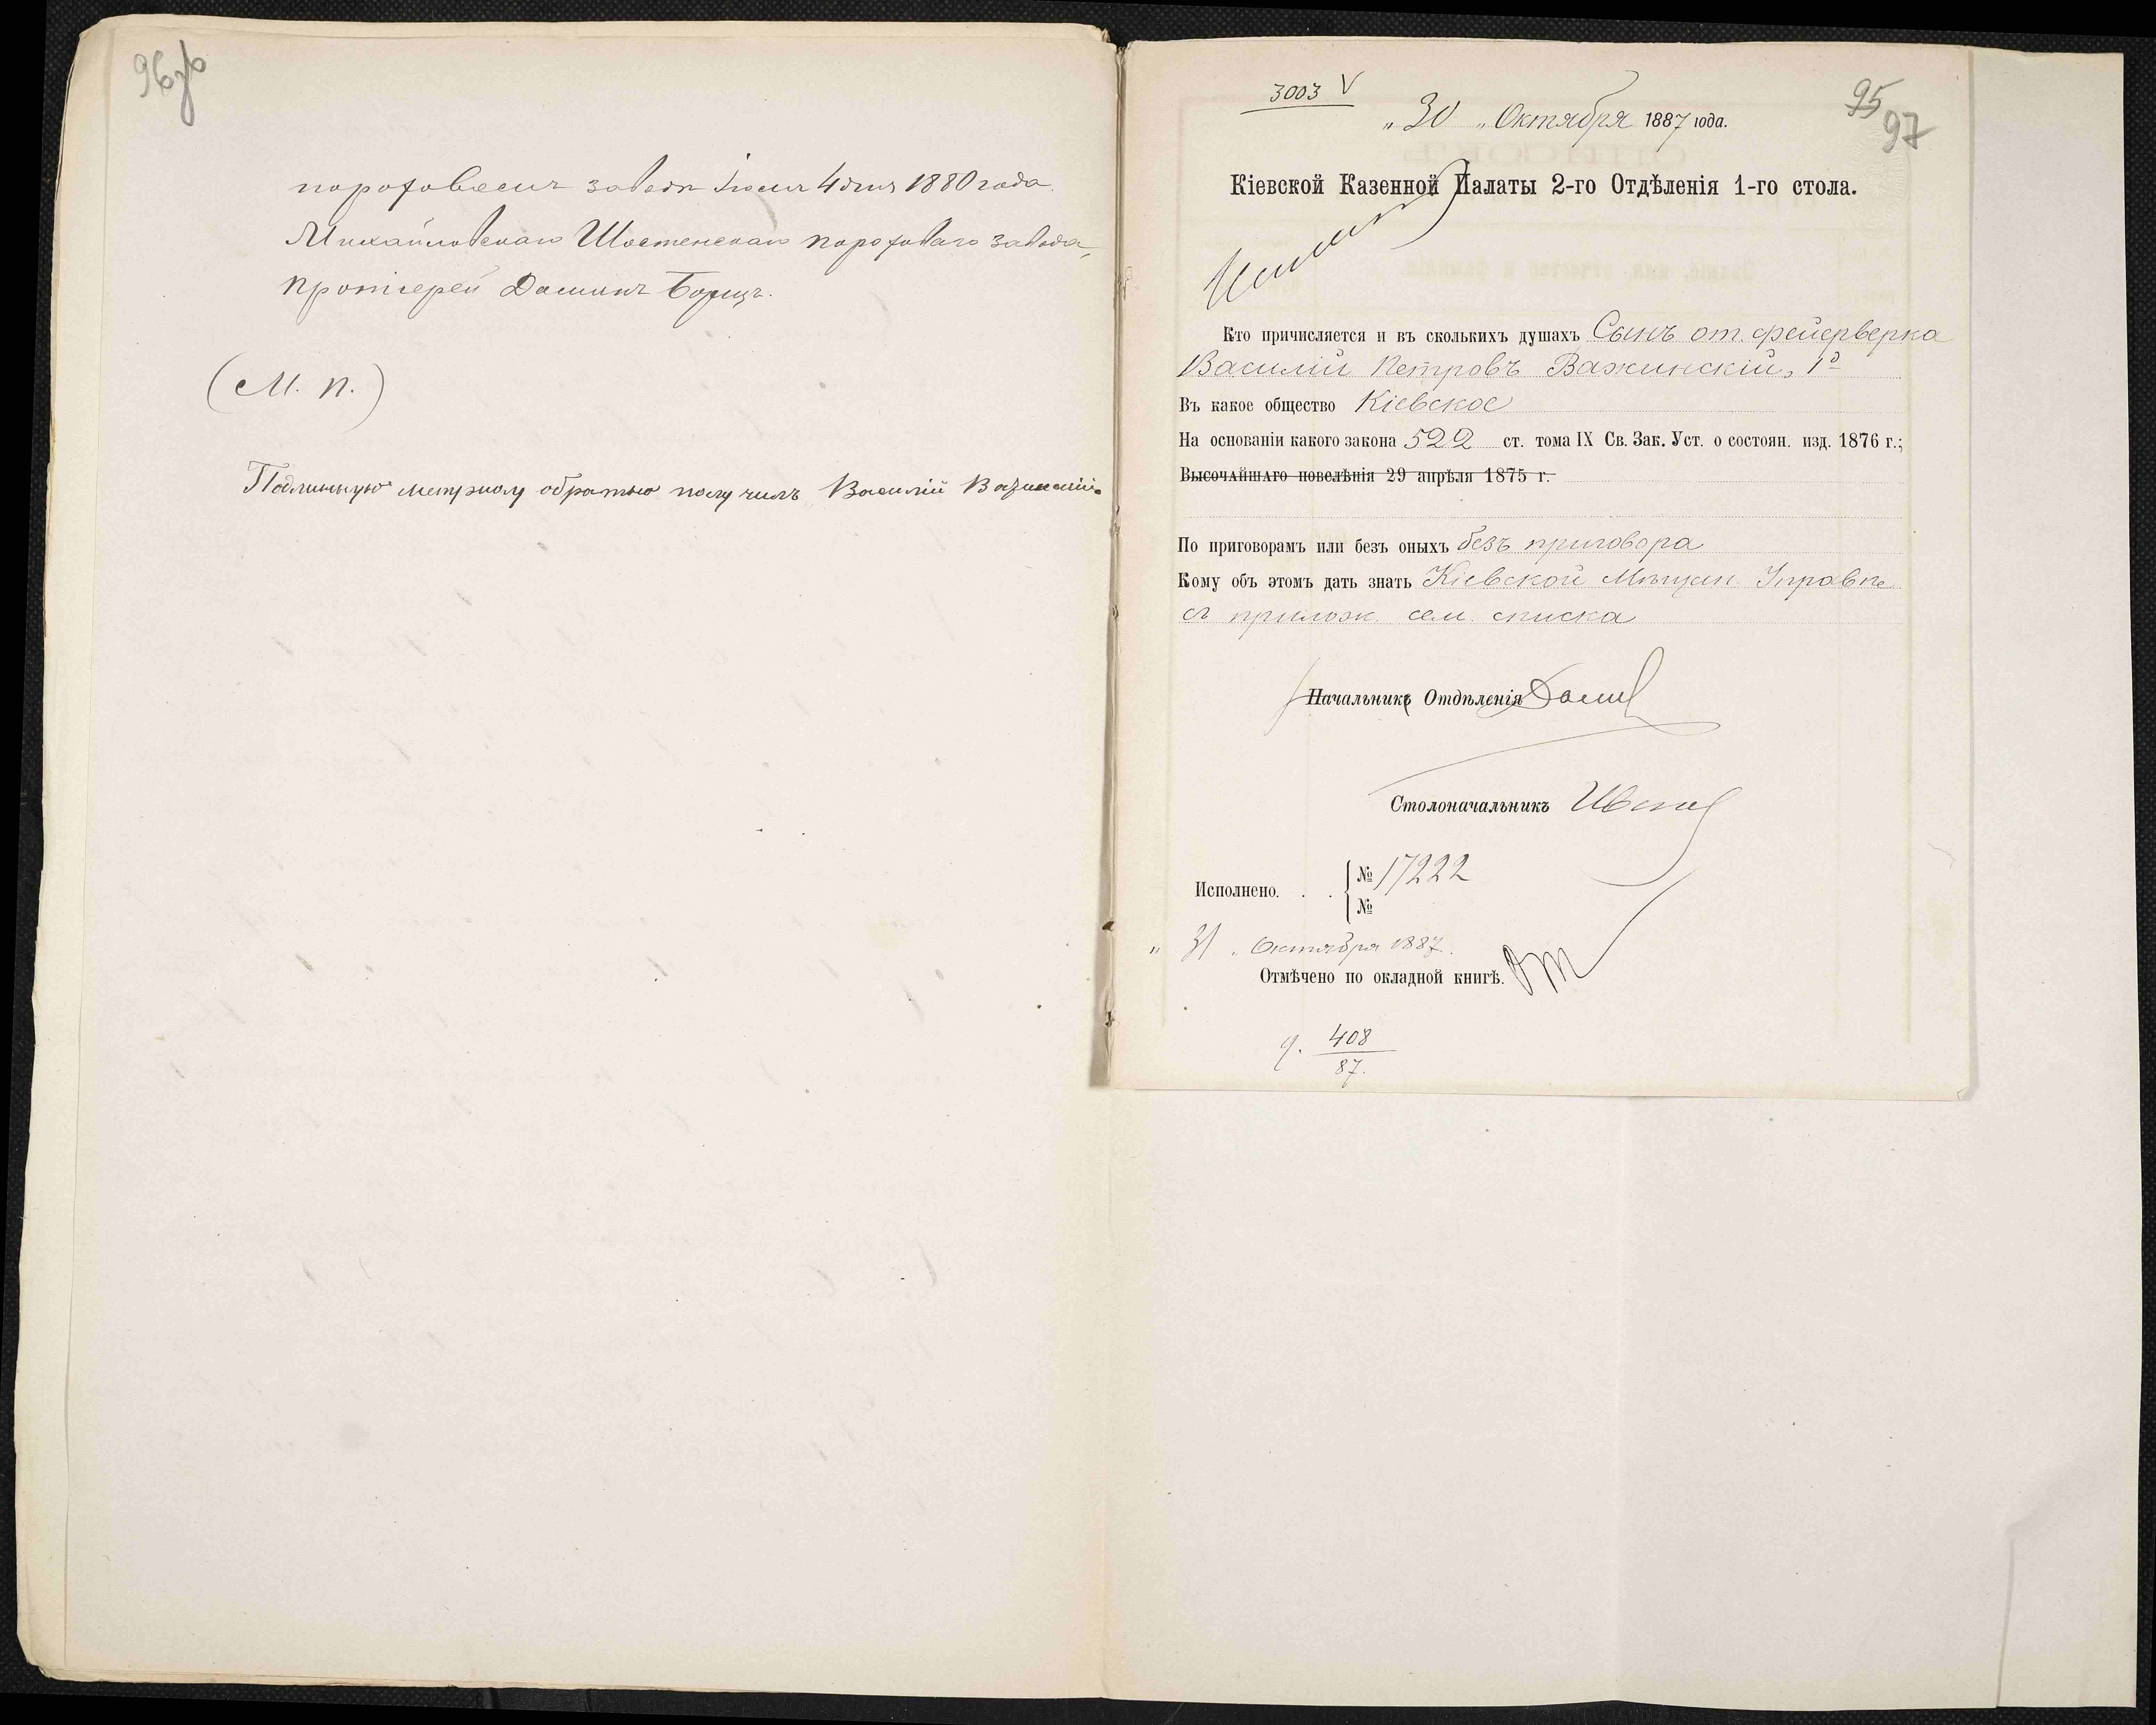 96 об
пороховомъ заводѣ Іюня 4 дня 1880 года.
Михайловскаго Шостенскаго пороховаго завода,
протіерей Даміанъ Борщъ.
(М. П.)
Подлинную метрику обратно получилъ Василій Важинскій.
3003 V
95
97
„ 30 „ Октября 1887 года.
Кіевской Казенной Палаты 2-го Отдѣленія 1-го стола.
Кто причисляется и въ сколькихъ душахъ Сынъ от. фейерверка
Василій Петровъ Важинскій, 1 д
Въ какое общество Кіевское
На основаніи какого закона 522 ст. тома IX Св. Зак. Уст. о состоян. изд. 1876 г.;
Высочайшаго повелѣнія 29 апрѣля 1875 г.
По приговорамъ или безъ оныхъ безъ приговора
Кому объ этомъ дать знать Кіевской Мѣщан. Управѣ
съ прилож. сем. списка
Начальникъ Отдѣленія
Столоначальникъ
Исполнено. . . № 17222
№
„ 31 „ Октября 1887.
Отмѣчено по окладной книгѣ.
408
87.